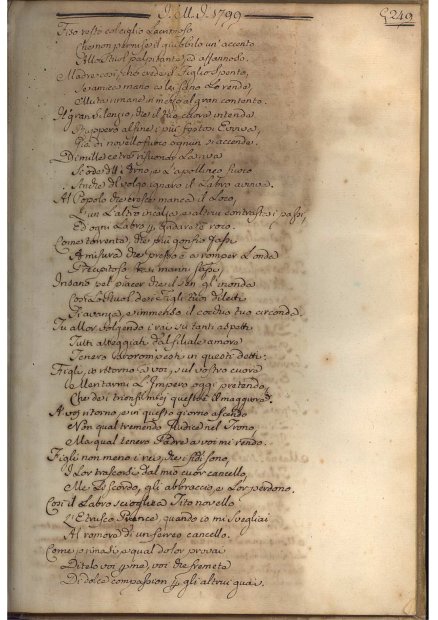 I. M. I. 1799
249
Fiso resto col ciglio lacrimoso
Che non permise il giubbilo un' accento
All'Actual palpitante, ed affannoso.
Madre così, che crede il Figlio spento,
Se amica mano a lei sano lo renda,
Muta rimane in mezzo al gran contento.
Il gran silenzio, che il tuo cuore intende
Ruppero alfine i più festosi Evviva,
Già di novello fuoco ognun s'accende.
Di mille cetre risuonò la riva
Se ode d' Arno, e a apollineo fuoco
Anche del volgo ignaro il Labro avviva.
Al Popolo che cresce manca il Loco,
L'un l'altro incalza, e altrui contrasta i passi,
Ed ogni Labro è per gridare roco.
Come torrente, che più gonfio fassi
A misura che presso è a romper l'onda
Precipitosa tra i marini sassi.
Insano pel piacer che il sen gl' inonda
Così lo stuol dei Figli tuoi diletti
S'avanza, e immenso il cocchio tuo circonda.
Tu allor volgendo i rai su tanti aspetti
Tutti atteggiati dal filiale amore
Tenero prorompesti in questi detti:
Figli, io ritorno a voi, sul vostro cuore
Meritarmi l'Impero oggi pretendo,
Che dei trionfi miei questo è il maggiore.
A voi ritorno, e in questo giorno ascendo
Non qual tremendo Giudice nel Trono,
Ma qual tenero Padre a voi mi rendo.
Figli non meno i rei, che i fidi sono,
I lor trascorsi dal mio cuor cancello,
Me li scordo, gli abbraccio, e lor perdono.
Così il Labro sciogliea Tito novello
L'Etrusco Prence, quando io mi svegliai
Al romore di un ferreo cancello.
Come rimasi, e qual dolor provai
Ditelo voi per me, voi che fremete
Di dolce compassion per gli altrui guai.